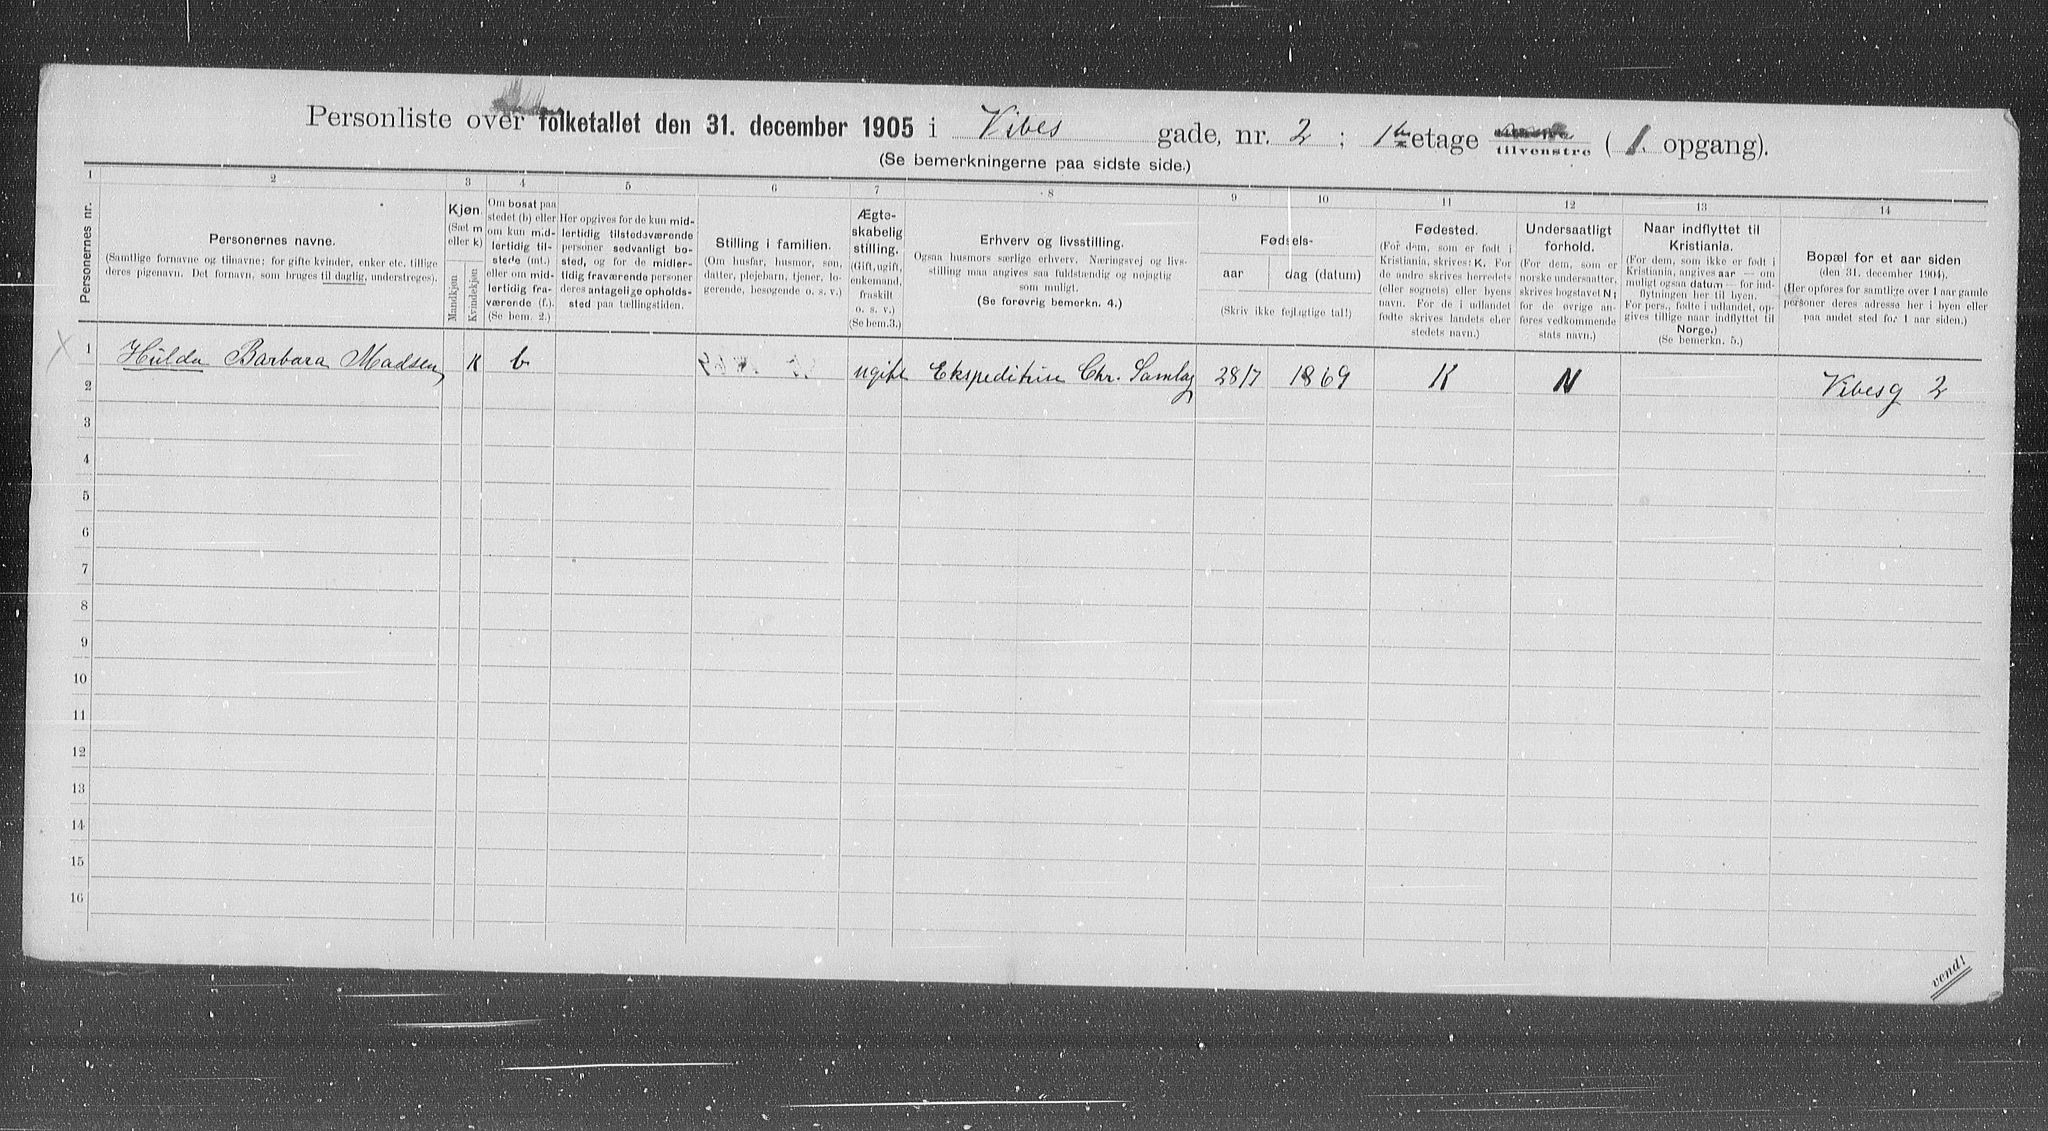 Personliste over folketallet den 31. december 1905 i Vibes gade, nr. 2 ; 1ste etage tilvenstre ( 1. opgang).
(Se bemerkningerne paa sidste side.)
1 2 3 4 5 6 7 8 9 10 11 12 13 14
Personernes nr.
Personernes navne.
(Samtlige fornavne og tilnavne; for gifte kvinder, enker etc. tillige
deres pigenavn. Det fornavn, som bruges til daglig, understreges).
Kjøn.
(Sæt m
eller k)
Mandkjøn
Kvindekjøn
Om bosat paa
stedet (b) eller
om kun mid-
lertidig til-
stede (mt.)
eller om mid-
lertidig fra-
værende (f.).
(Se bem. 2.)
Her opgives for de kun mid-
lertidig tilstedeværende
personer sedvanligt bo-
sted, og for de midler-
tidig fraværende personer
deres antagelige opholds-
sted paa tællingstiden.
Stilling i familien.
(Om husfar, husmor, søn,
datter, plejebarn, tjener, lo-
gerende, besøgende o. s. v.)
Ægte-
skabelig
stilling.
(Gift, ugift,
enkemand,
fraskilt
o. s. v.)
(Se bem.3.)
Erhverv og livsstilling.
Ogsaa husmors særlige erhverv. Næringsvej og livs-
stilling maa angives saa fuldstændig og nøjagtig
som muligt.
(Se forøvrig bemerkn. 4.)
Fødsels-
aar
dag (datum)
(Skriv ikke fejlagtige tal!)
Fødested.
(For dem, som er født i
Kristiania, skrives: K. For
de andre skrives herredets
(eller sognets) eller byens
navn. For de i udlandet
fødte skrives landets eller
stedets navn.)
Undersaatligt
forhold.
(For dem, som er
norske undersaatter,
skrives bogstavet N;
for de øvrige an-
føres vedkommende
stats navn.)
Naar indflyttet til
Kristiania.
(For dem, som ikke er født i
Kristiania, angives aar — om
muligt ogsaa datum — for ind-
flytningen her til byen.
For pers., fødte i udlandet, op-
gives tillige naar indflyttet til
Norge.)
(Se bemerkn. 5.)
Bopæl for et aar siden
(den 31. december 1904).
(Her opføres for samtlige over 1 aar gamle
personer deres adresse her i byen eller
paa andet sted for 1 aar siden.)
1 Hulda Barbara Madsen K b ugift Ekspeditrise Chr. Samlag 28/7 1869 K N Vibesg 2
2
3
4
5
6
7
8
9
10
11
12
13
14
15
16
vend!